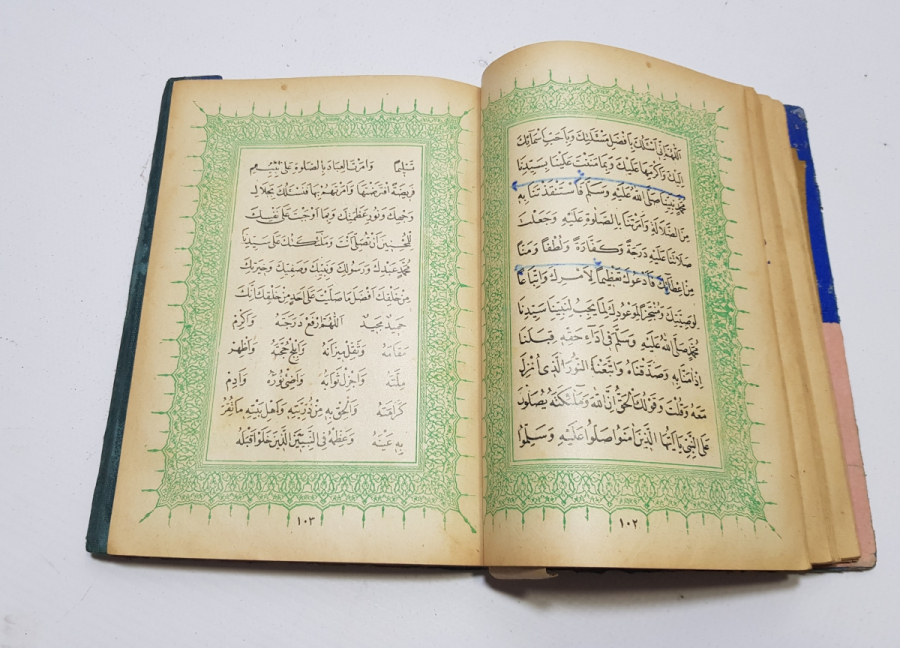 اَللّٰهُمَّ اِنّٖى اَسْئَلُكَ بِاَفْضَلِ مَسْئَلَتِكَ وَبِاَحَبِّ اَسْمَائِكَ
اِلَيْكَ وَاَكْرَمِهَا عَلَيْكَ وَبِمَا مَنَنْتَ عَلَيْنَا بِسَيِّدِنَا
مُحَمَّدٍ نَبِيِّنَا صَلَّى اللّٰهُ عَلَيْهِ وَسَلَّمَ فَاسْتَنْقَذْتَنَا بِهِ
مِنَ الضَّلَالَةِ وَاَمَرْتَنَا بِالصَّلٰوةِ عَلَيْهِ وَجَعَلْتَ
صَلَاتَنَا عَلَيْهِ دَرَجَةً وَكَفَّارَةً وَلُطْفًا وَمَنًّا
مِنْ اِعْطَائِكَ فَاَدْعُوكَ تَعْظِيمًا لِاَمْرِكَ وَاتِّبَاعًا
لِوَصِيَّتِكَ وَمُنْتَجِزًا لِمَوْعُودِكَ لِمَا يَجِبُ لِنَبِيِّنَا سَيِّدِنَا
مُحَمَّدٍ صَلَّى اللّٰهُ عَلَيْهِ وَسَلَّمَ فِى اَدَاءِ حَقِّهِ قِبَلَنَا
اِذْ اٰمَنَّا بِهِ وَصَدَّقْنَاهُ وَاتَّبَعْنَا النُّورَ الَّذِى اُنْزِلَ
مَعَهُ وَقُلْتَ وَقَوْلُكَ الْحَقُّ اِنَّ اللّٰهَ وَمَلٰئِكَتَهُ يُصَلُّونَ
عَلَى النَّبِىِّ يَا اَيُّهَا الَّذِينَ اٰمَنُوا صَلُّوا عَلَيْهِ وَسَلِّمُوا
١٠٢
تَسْلِيمًا وَاَمَرْتَ الْعِبَادَ بِالصَّلٰوةِ عَلٰى نَبِيِّهِمْ
فَرِيضَةً افْتَرَضْتَهَا وَاَمَرْتَهُمْ بِهَا فَنَسْئَلُكَ بِجَلَالِ
وَجْهِكَ وَنُورِ عَظَمَتِكَ وَبِمَا اَوْجَبْتَ عَلٰى نَفْسِكَ
لِلْمُحْسِنِينَ اَنْ تُصَلِّىَ اَنْتَ وَمَلٰئِكَتُكَ عَلٰى سَيِّدِنَا
مُحَمَّدٍ عَبْدِكَ وَرَسُولِكَ وَنَبِيِّكَ وَصَفِيِّكَ وَخِيَرَتِكَ
مِنْ خَلْقِكَ اَفْضَلَ مَا صَلَّيْتَ عَلٰى اَحَدٍ مِنْ خَلْقِكَ اِنَّكَ
حَمِيدٌ مَجِيدٌ اَللّٰهُمَّ ارْفَعْ دَرَجَتَهُ وَاَكْرِمْ
مَقَامَهُ وَثَقِّلْ مِيزَانَهُ وَاَبْلِجْ حُجَّتَهُ وَاَظْهِرْ
مِلَّتَهُ وَاَجْزِلْ ثَوَابَهُ وَاَضِئْ نُورَهُ وَاَدِمْ
كَرَامَتَهُ وَاَلْحِقْ بِهِ مِنْ ذُرِّيَّتِهِ وَاَهْلِ بَيْتِهِ مَا تُقِرُّ
بِهِ عَيْنَهُ وَعَظِّمْهُ فِى النَّبِيِّينَ الَّذِينَ خَلَوْا قَبْلَهُ
١٠٣